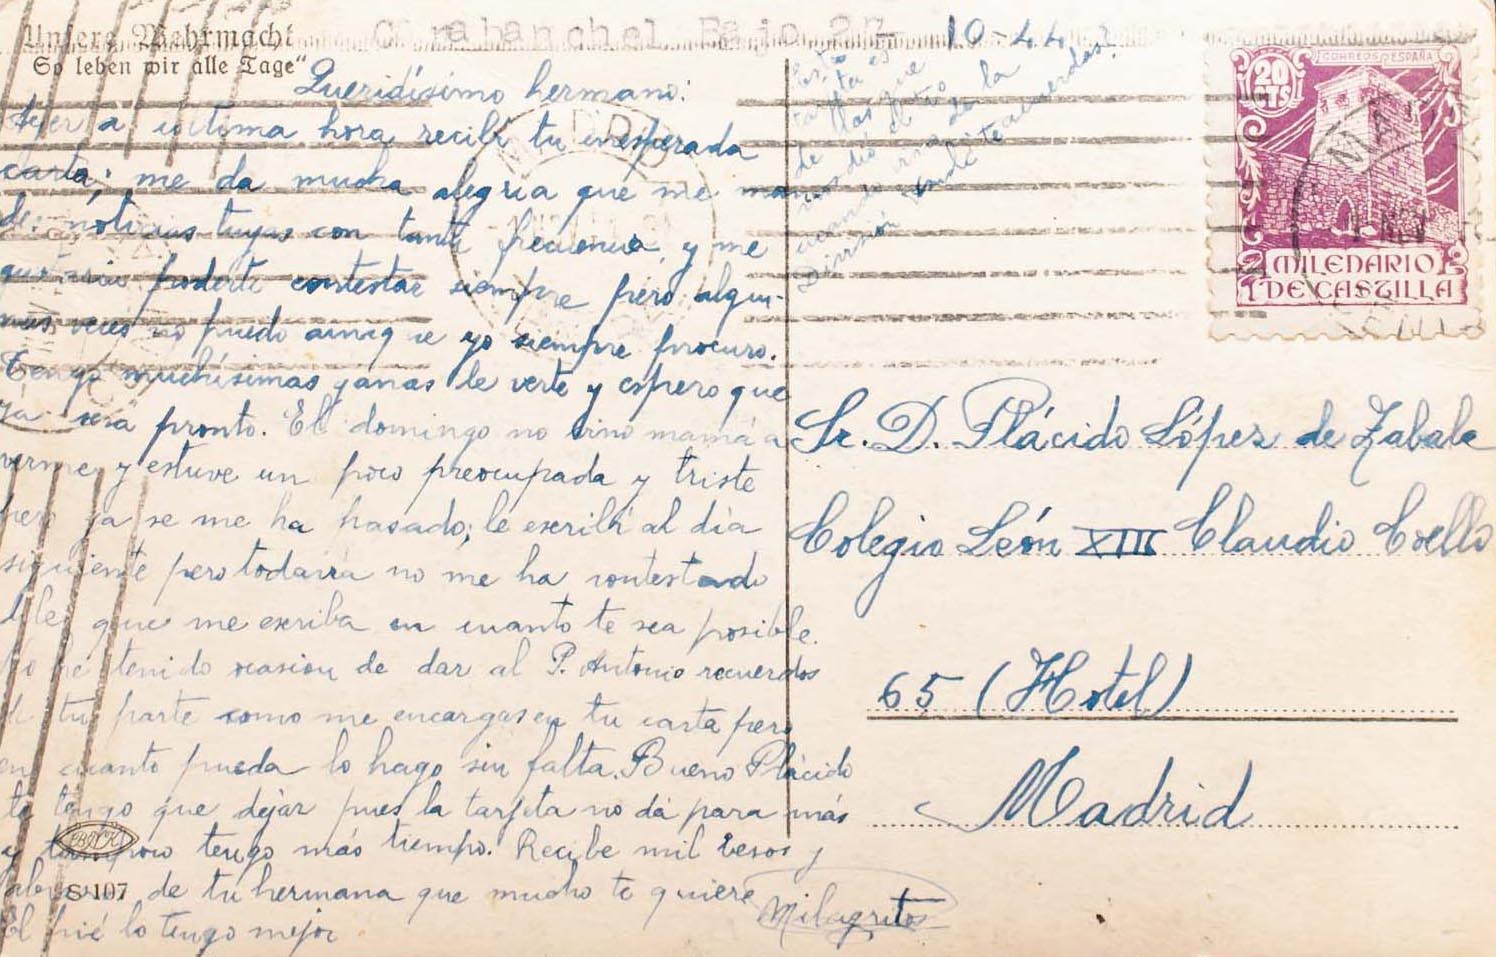 Unsere Wehrmacht
So leben wir alle Tage"
Carabanchel Bajo 27- 10-44
Queridísimo hermano:
Ayer a última hora recibí tu inesperada
carta; me da mucha alegria que me man
des noticias tuyas con tanta frecuencia, y me
gustaria poderte contestar siempre pero algu-
nas veces no puedo aunq ue yo siempre procuro.
Tengo muchísimas ganas de verte y espero que
ya será pronto. El domingo no vino mamá a
verme y estuve un poco preocupada y triste
pero ya se me ha pasado; le escribí al día
siguiente pero todavía no me ha contestado
dile que me escriba en cuanto te sea posible.
No he tenido ocasion de dar al P. Antonio recuerdos
de tu parte como me encargas en tu carta pero
en cuanto pueda lo hago sin falta. Bueno Plácido
te tengo que dejar pues la tarjeta no dá para más
y tampoco tengo más tiempo. Recibe mil besos y
abrazos de tu hermana que mucho te quiere
Milagritos
El pié lo tengo mejor
S 107
Esta
tarjeta es
de las que
nos dió el
cuando de la
División te acuerdas?
20
CTS
CORREOS ESPAÑA
MILENARIO
DE CASTILLA
Sr. D. Plácido López de Zabala
Colegio León XIII Claudio Coello
65 (Hotel)
Madrid